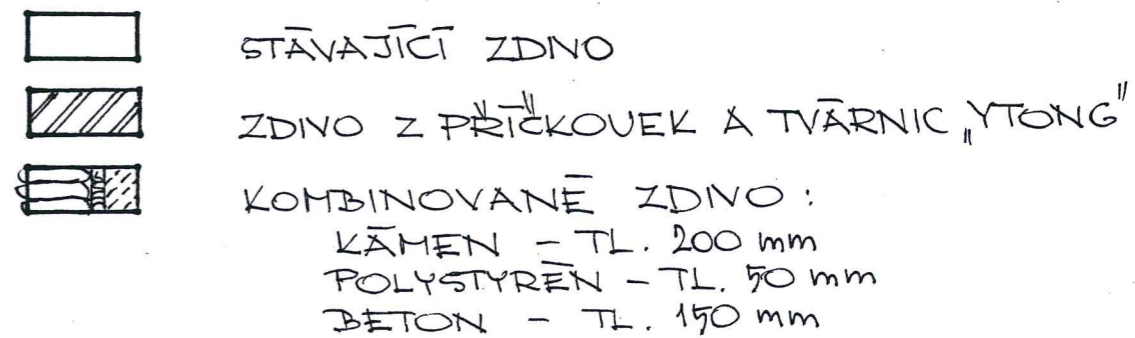 STÁVAJÍCÍ ZDIVO
ZDIVO Z PŘÍČKOVEK A TVÁRNIC „YTONG"
KOMBINOVANÉ ZDIVO :
KÁMEN - TL. 200 mm
POLYSTYRÉN - TL. 50 mm
BETON - TL. 150 mm